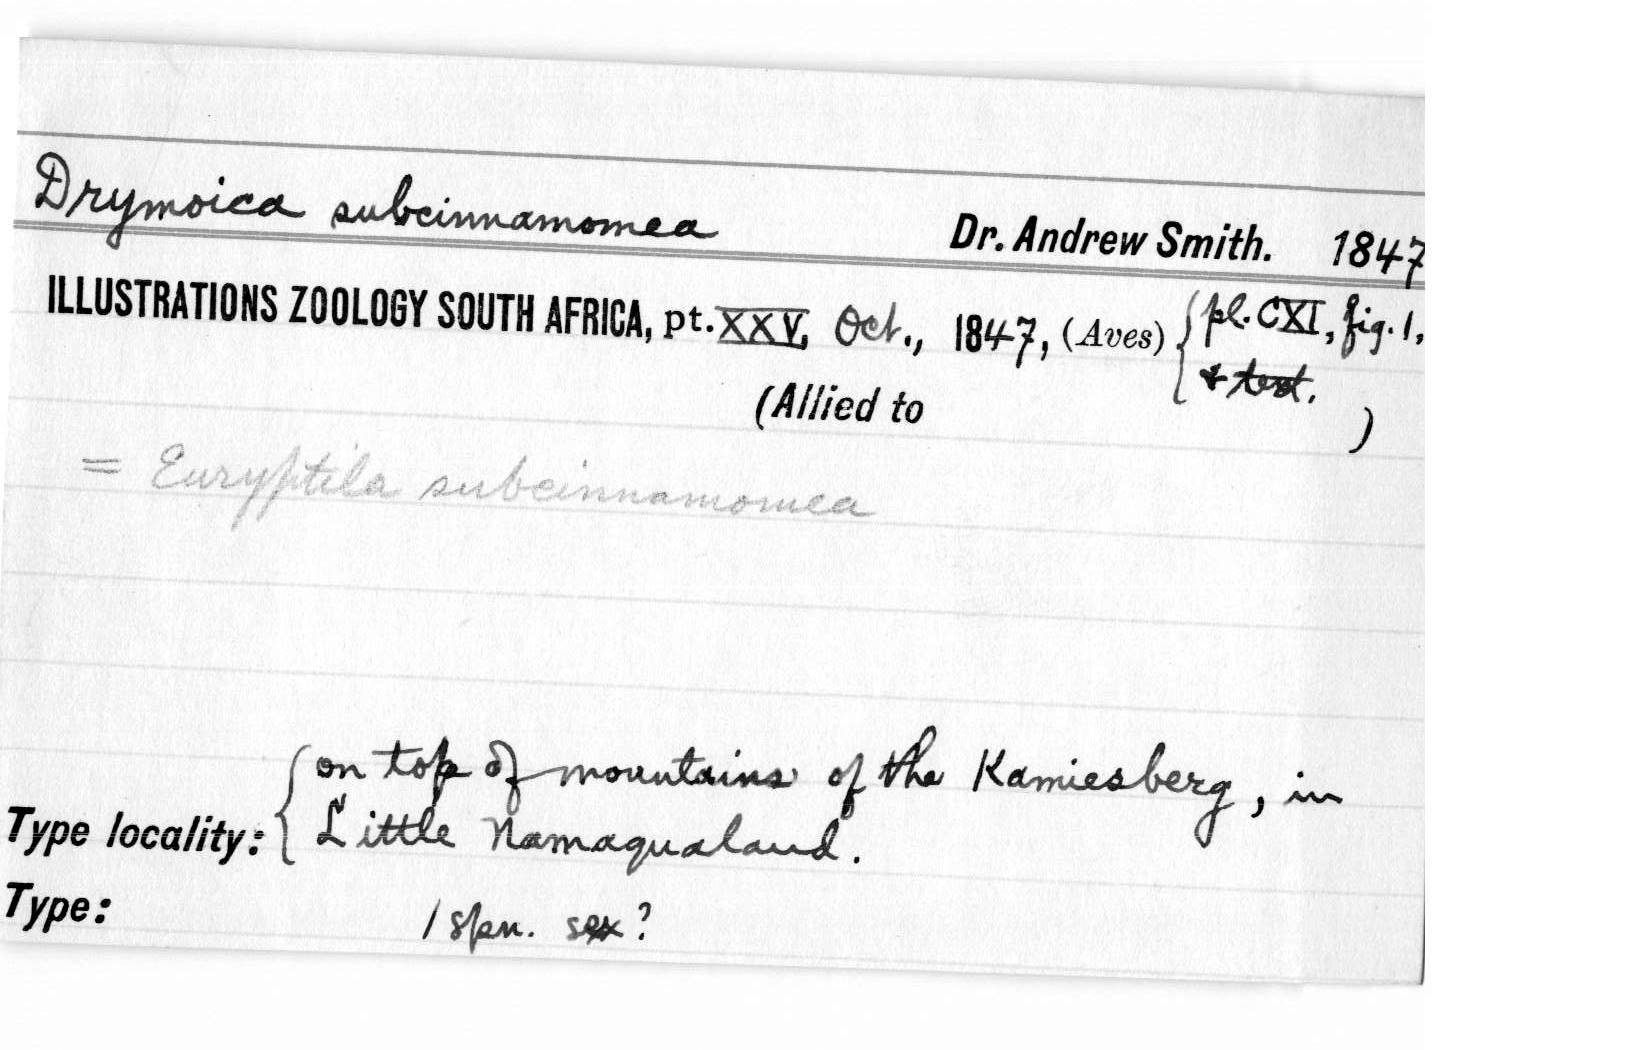 Drymoica subcinnamomea Dr. Andrew Smith. 1847
ILLUSTRATIONS ZOOLOGY SOUTH AFRICA, pt. XXV, Oct., 1847, (Aves) { pl. CXI, fig. 1,
& text.
(Allied to )
= Euryptila subcinnamomea
on top of mountains of the Kamiesberg, in
Type locality: { Little Namaqualand.
Type: 1 spn. sex?